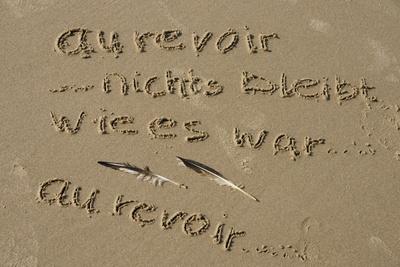 au revoir
....nichts bleibt
wie es war.....
au revoir....